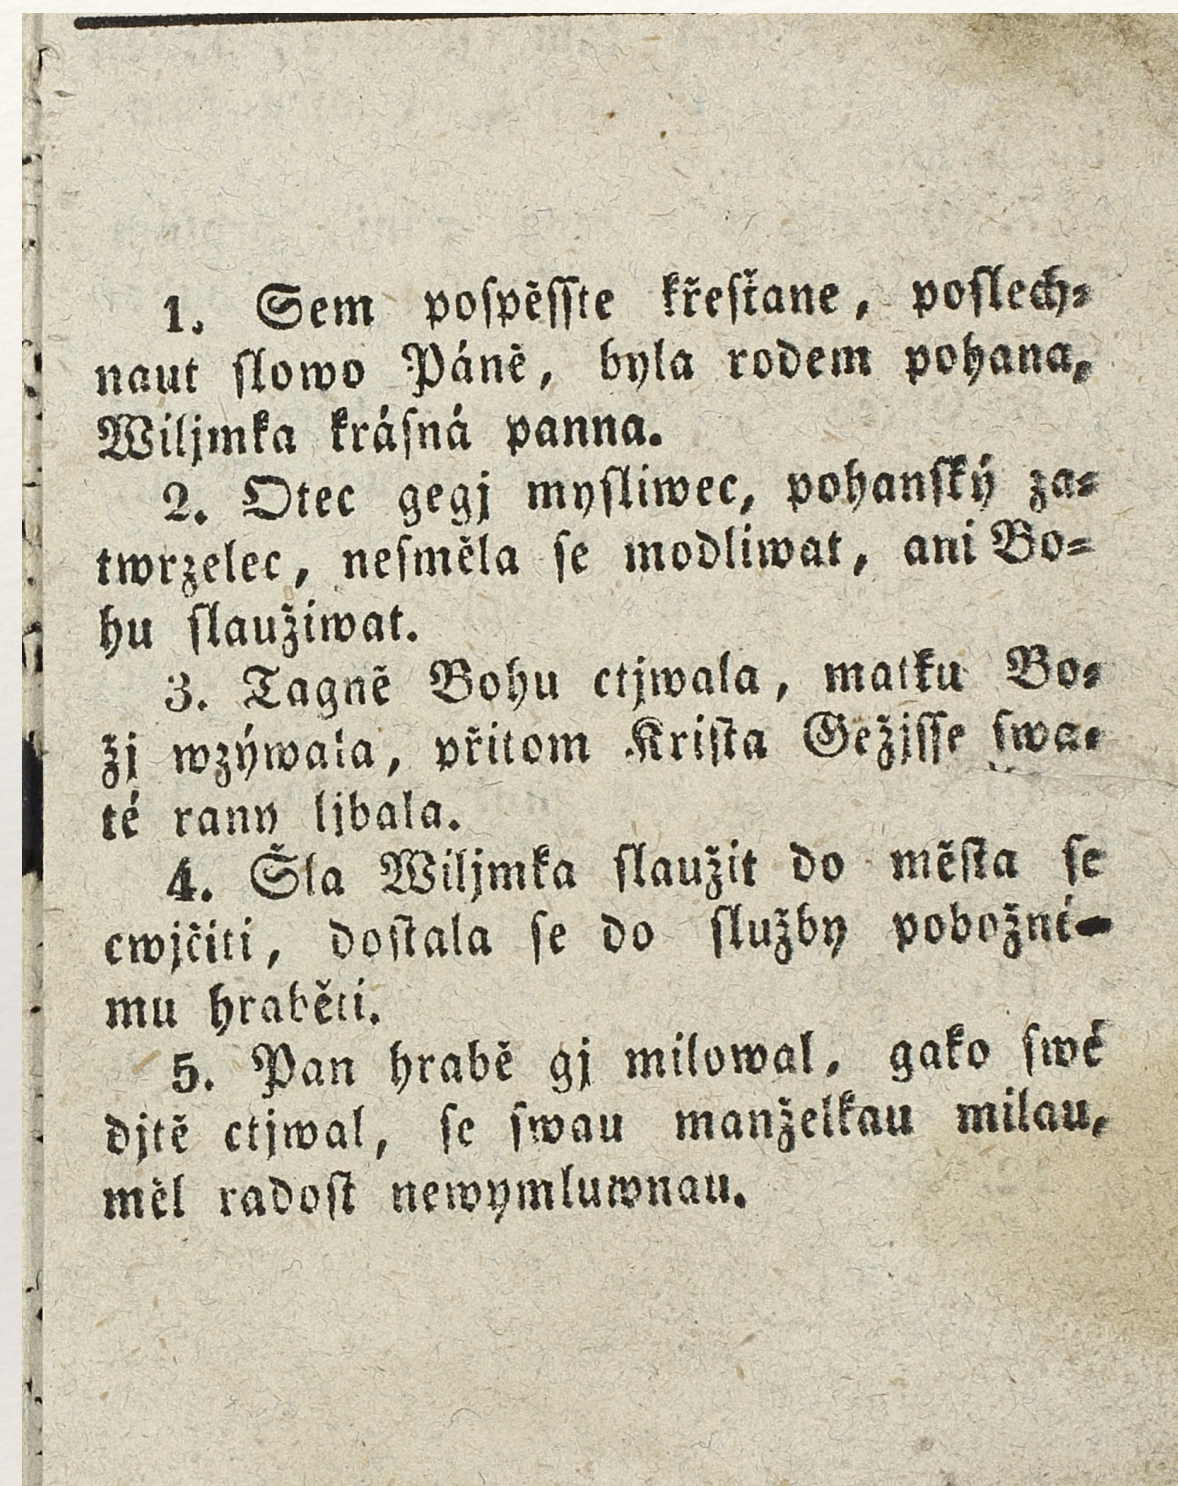 1. Sem poſpěſſte křeſťane, poſlech-
naut ſlowo Páně, byla rodem pohana,
Wiljmka kráſná panna.
2. Otec gegj myſliwec, pohanſký za-
twrzelec, neſměla ſe modliwat, ani Bo-
hu ſlaužiwat.
3. Tagně Bohu ctjwala, matku Bo-
žj wzýwala, přitom Kriſta Gežjſſe ſwa-
té rany ljbala.
4. Šla Wiljmka ſlaužit do měſta ſe
cwjčiti, doſtala ſe do ſlužby pobožné-
mu hraběti.
5. Pan hrabě gj milowal, gako ſwé
djtě ctjwal, ſe ſwau manželkau milau,
měl radoſt newymluwnau.